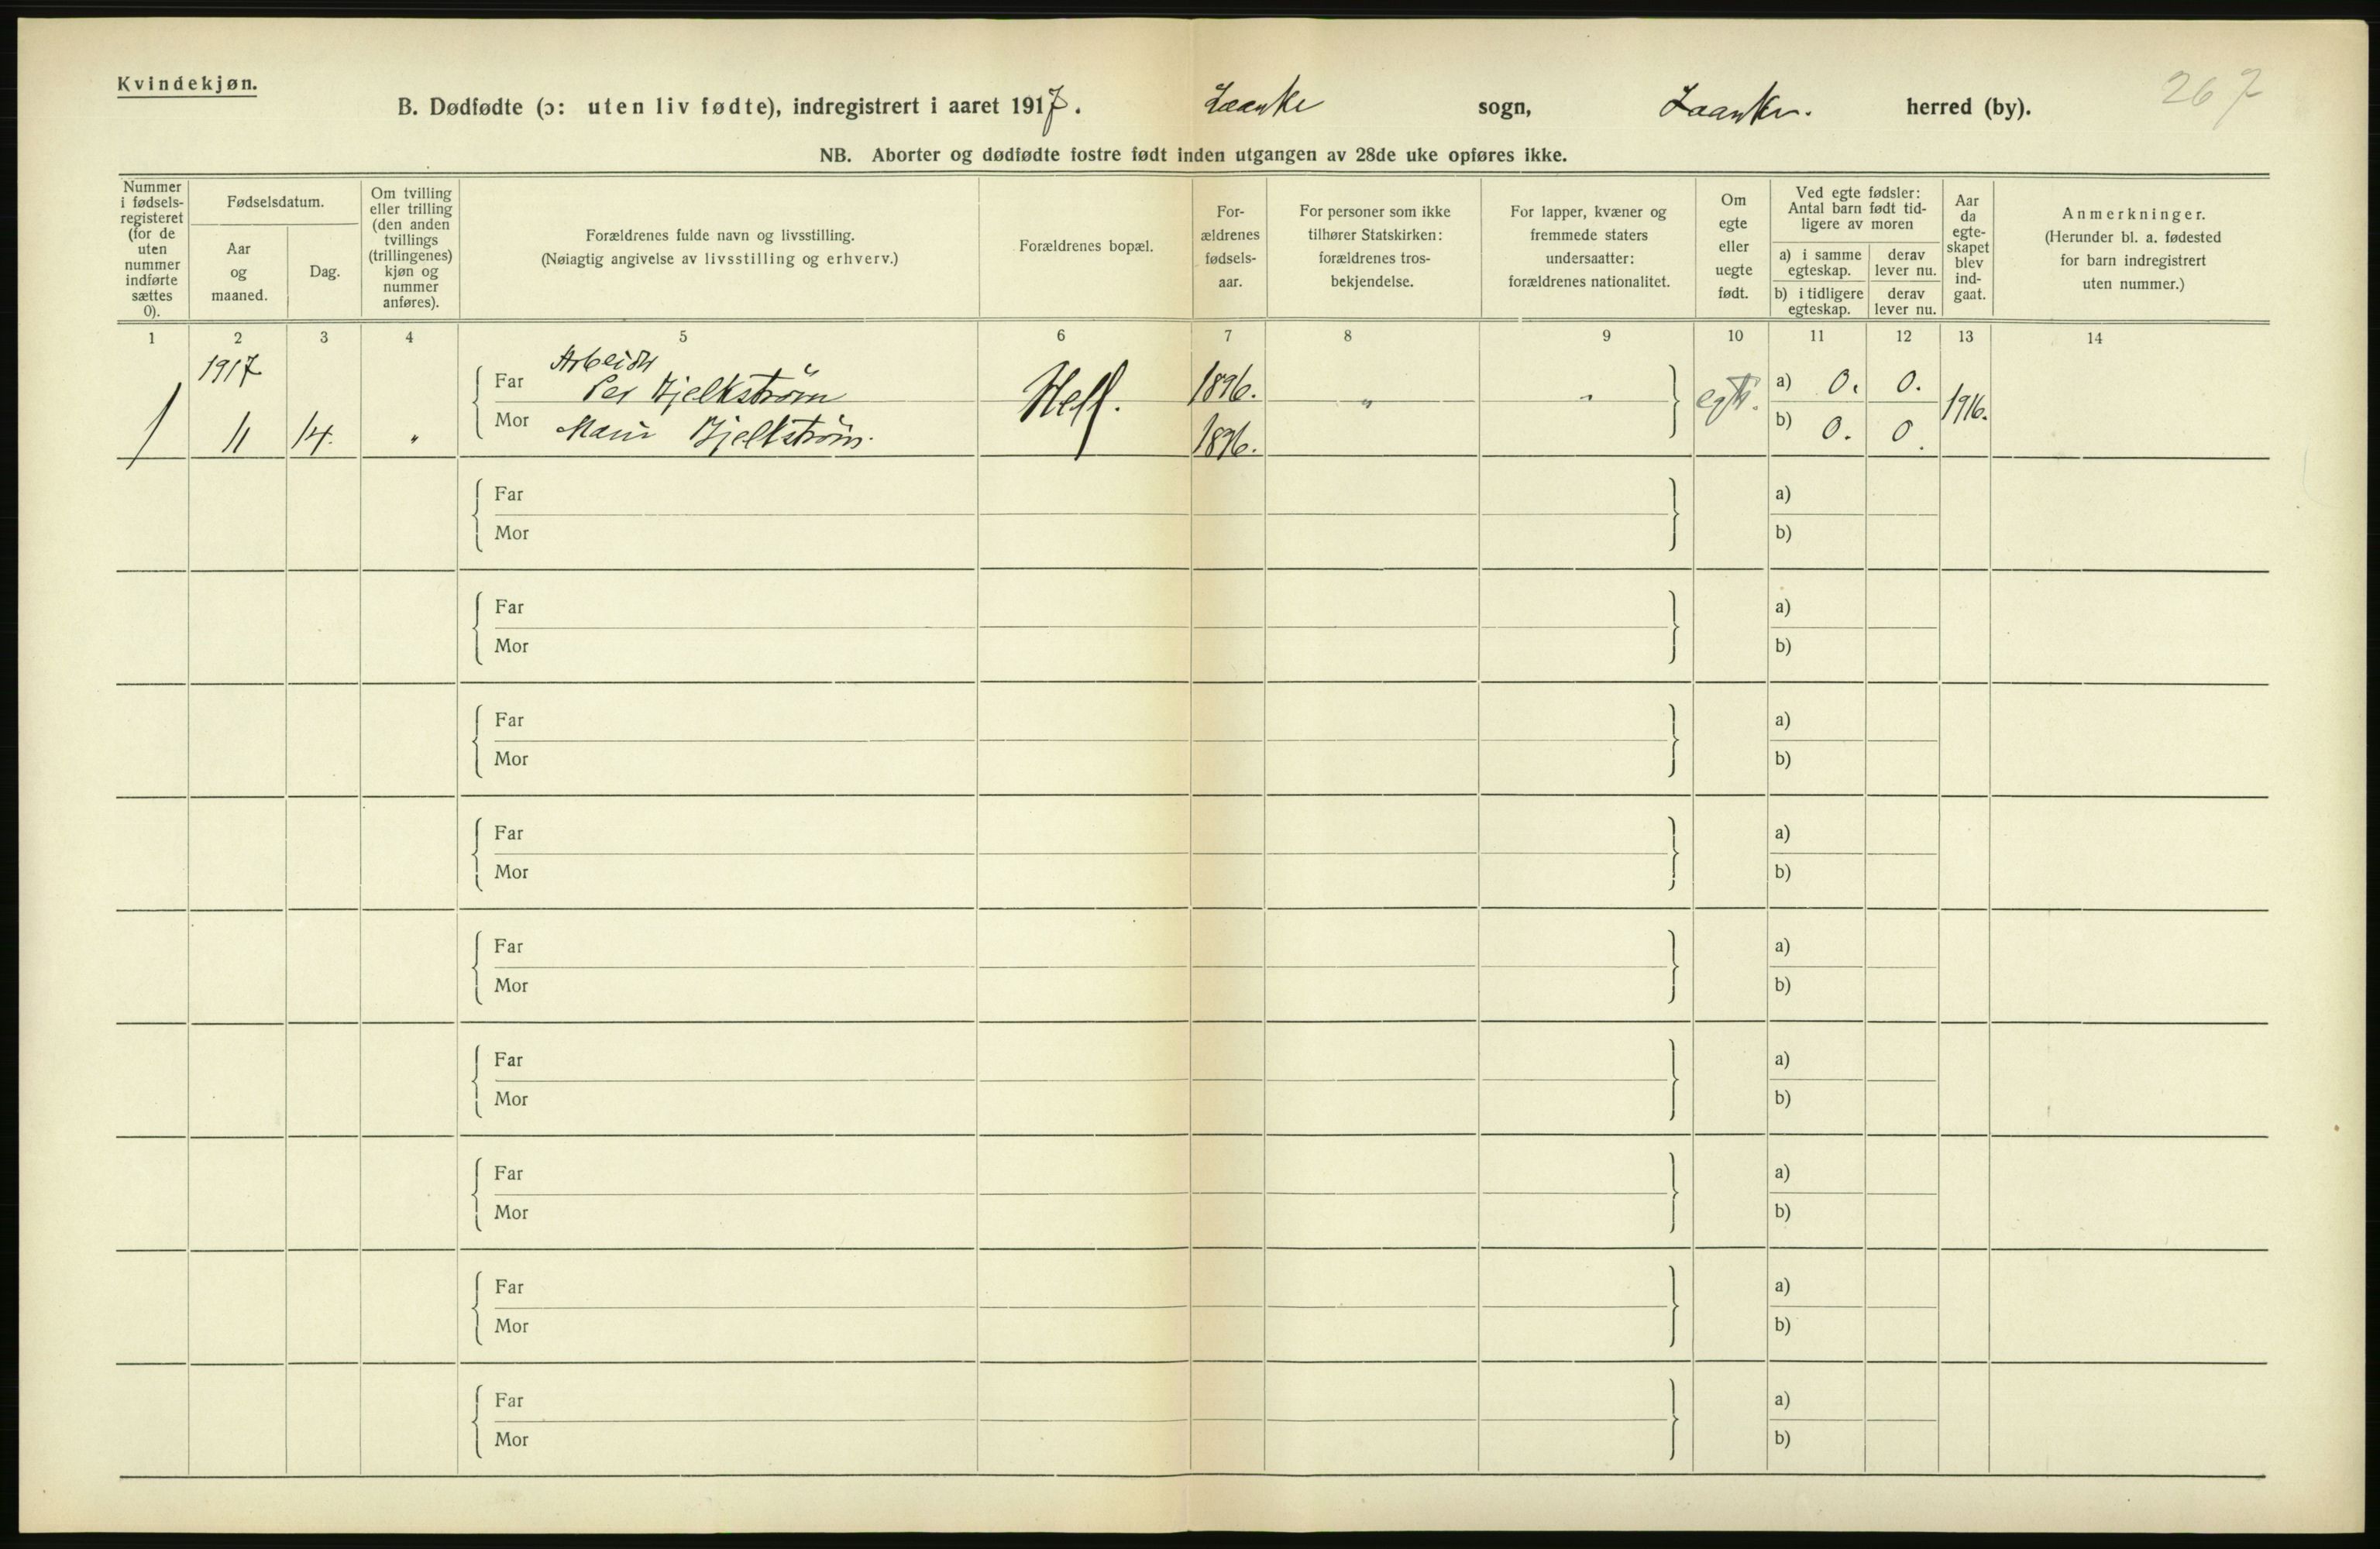 Kvindekjøn.
267
B. Dødfødte (ɔ: uten liv fødte), indregistrert i aaret 1917. Laanke sogn, Laanke. herred (by).
NB. Aborter og dødfødte fostre født inden utgangen av 28de uke opføres ikke.
Nummer i fødsels-registeret (for de uten nummer indførte sættes 0).
Fødselsdatum.
Aar og maaned.
Dag.
Om tvilling eller trilling (den anden tvillings (trillingenes) kjøn og nummer anføres).
Forældrenes fulde navn og livsstilling.
(Nøiagtig angivelse av livsstilling og erhverv.)
Forældrenes bopæl.
For-ældrenes fødsels-aar.
For personer som ikke tilhører Statskirken: forældrenes tros-bekjendelse.
For lapper, kvæner og fremmede staters undersaatter: forældrenes nationalitet.
Om egte eller uegte født.
Ved egte fødsler: Antal barn født tid-ligere av moren
a) i samme egteskap.
derav lever nu.
b) i tidligere egteskap.
derav lever nu.
Aar da egte-skapet blev ind-gaat.
Anmerkninger.
(Herunder bl. a. fødested for barn indregistrert uten nummer.)
1 2 3 4 5 6 7 8 9 10 11 12 13 14
1917 Arbeider
Far Per Bjelkström Hell. 1896. " " egte. a) 0. 0. 1916.
1 11 14. " Mor Bjelkström. 1896. b) 0. 0.
Far a)
Mor b)
Far a)
Mor b)
Far a)
Mor b)
Far a)
Mor b)
Far a)
Mor b)
Far a)
Mor b)
Far a)
Mor b)
Far a)
Mor b)
Far a)
Mor b)